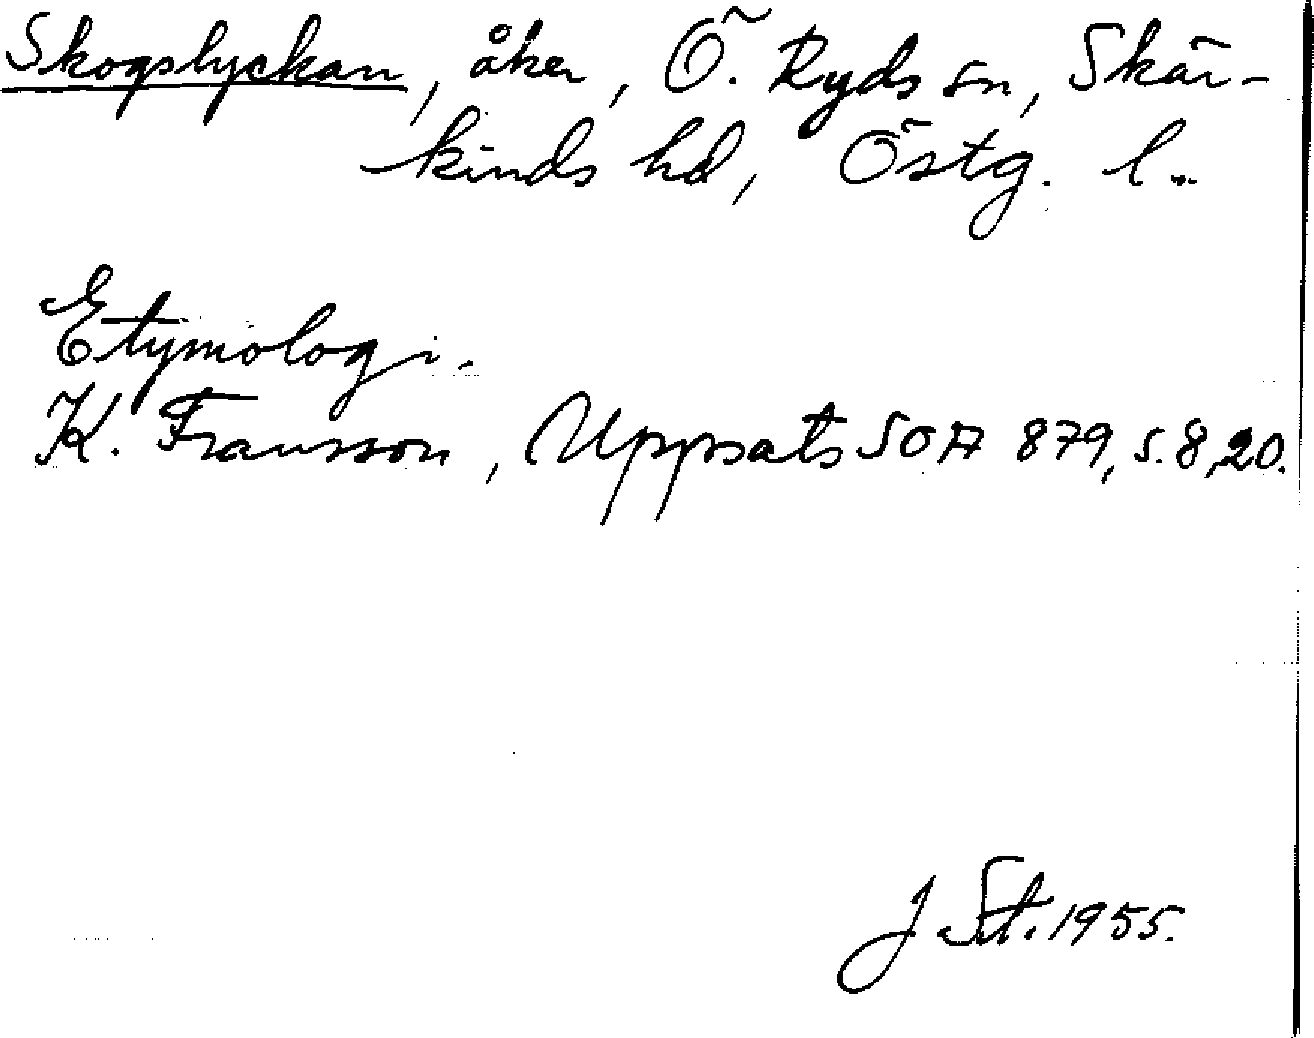 Skogslyckan, åker, Ö. Ryds sn, Skär-
kinds hd, Östg. l.
Etymologi.
K. Fransson, Uppsats SOA 879, s. 8, 20.
J St. 1955.